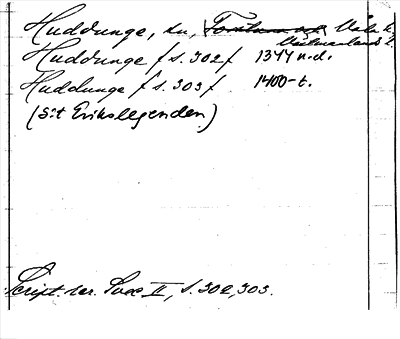 Huddunge, sn, Våla h.
Västmanlands l.
Huddunge f s. 302 f 1344 n.d.
Huddunge f s. 303 f. 1400-t.
(S:t Erikslegenden)
Script. rer. Suec II, s. 302, 303.